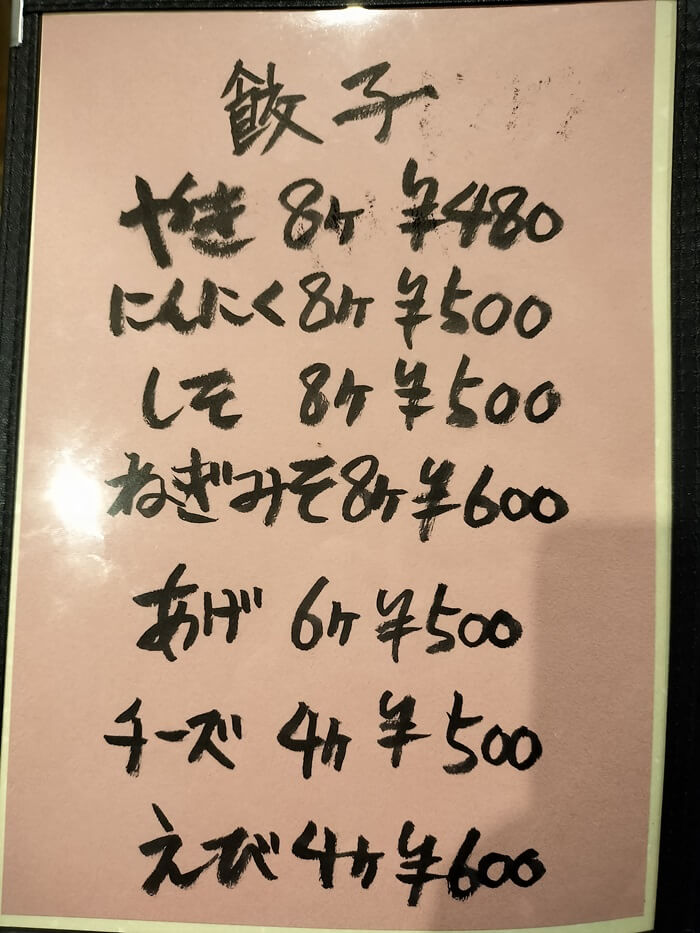 餃子
やき 8ヶ ¥480
にんにく 8ヶ ¥500
しそ 8ヶ ¥500
ねぎみそ 8ヶ ¥600
あげ 6ヶ ¥500
チーズ 4ヶ ¥500
えび 4ヶ ¥600